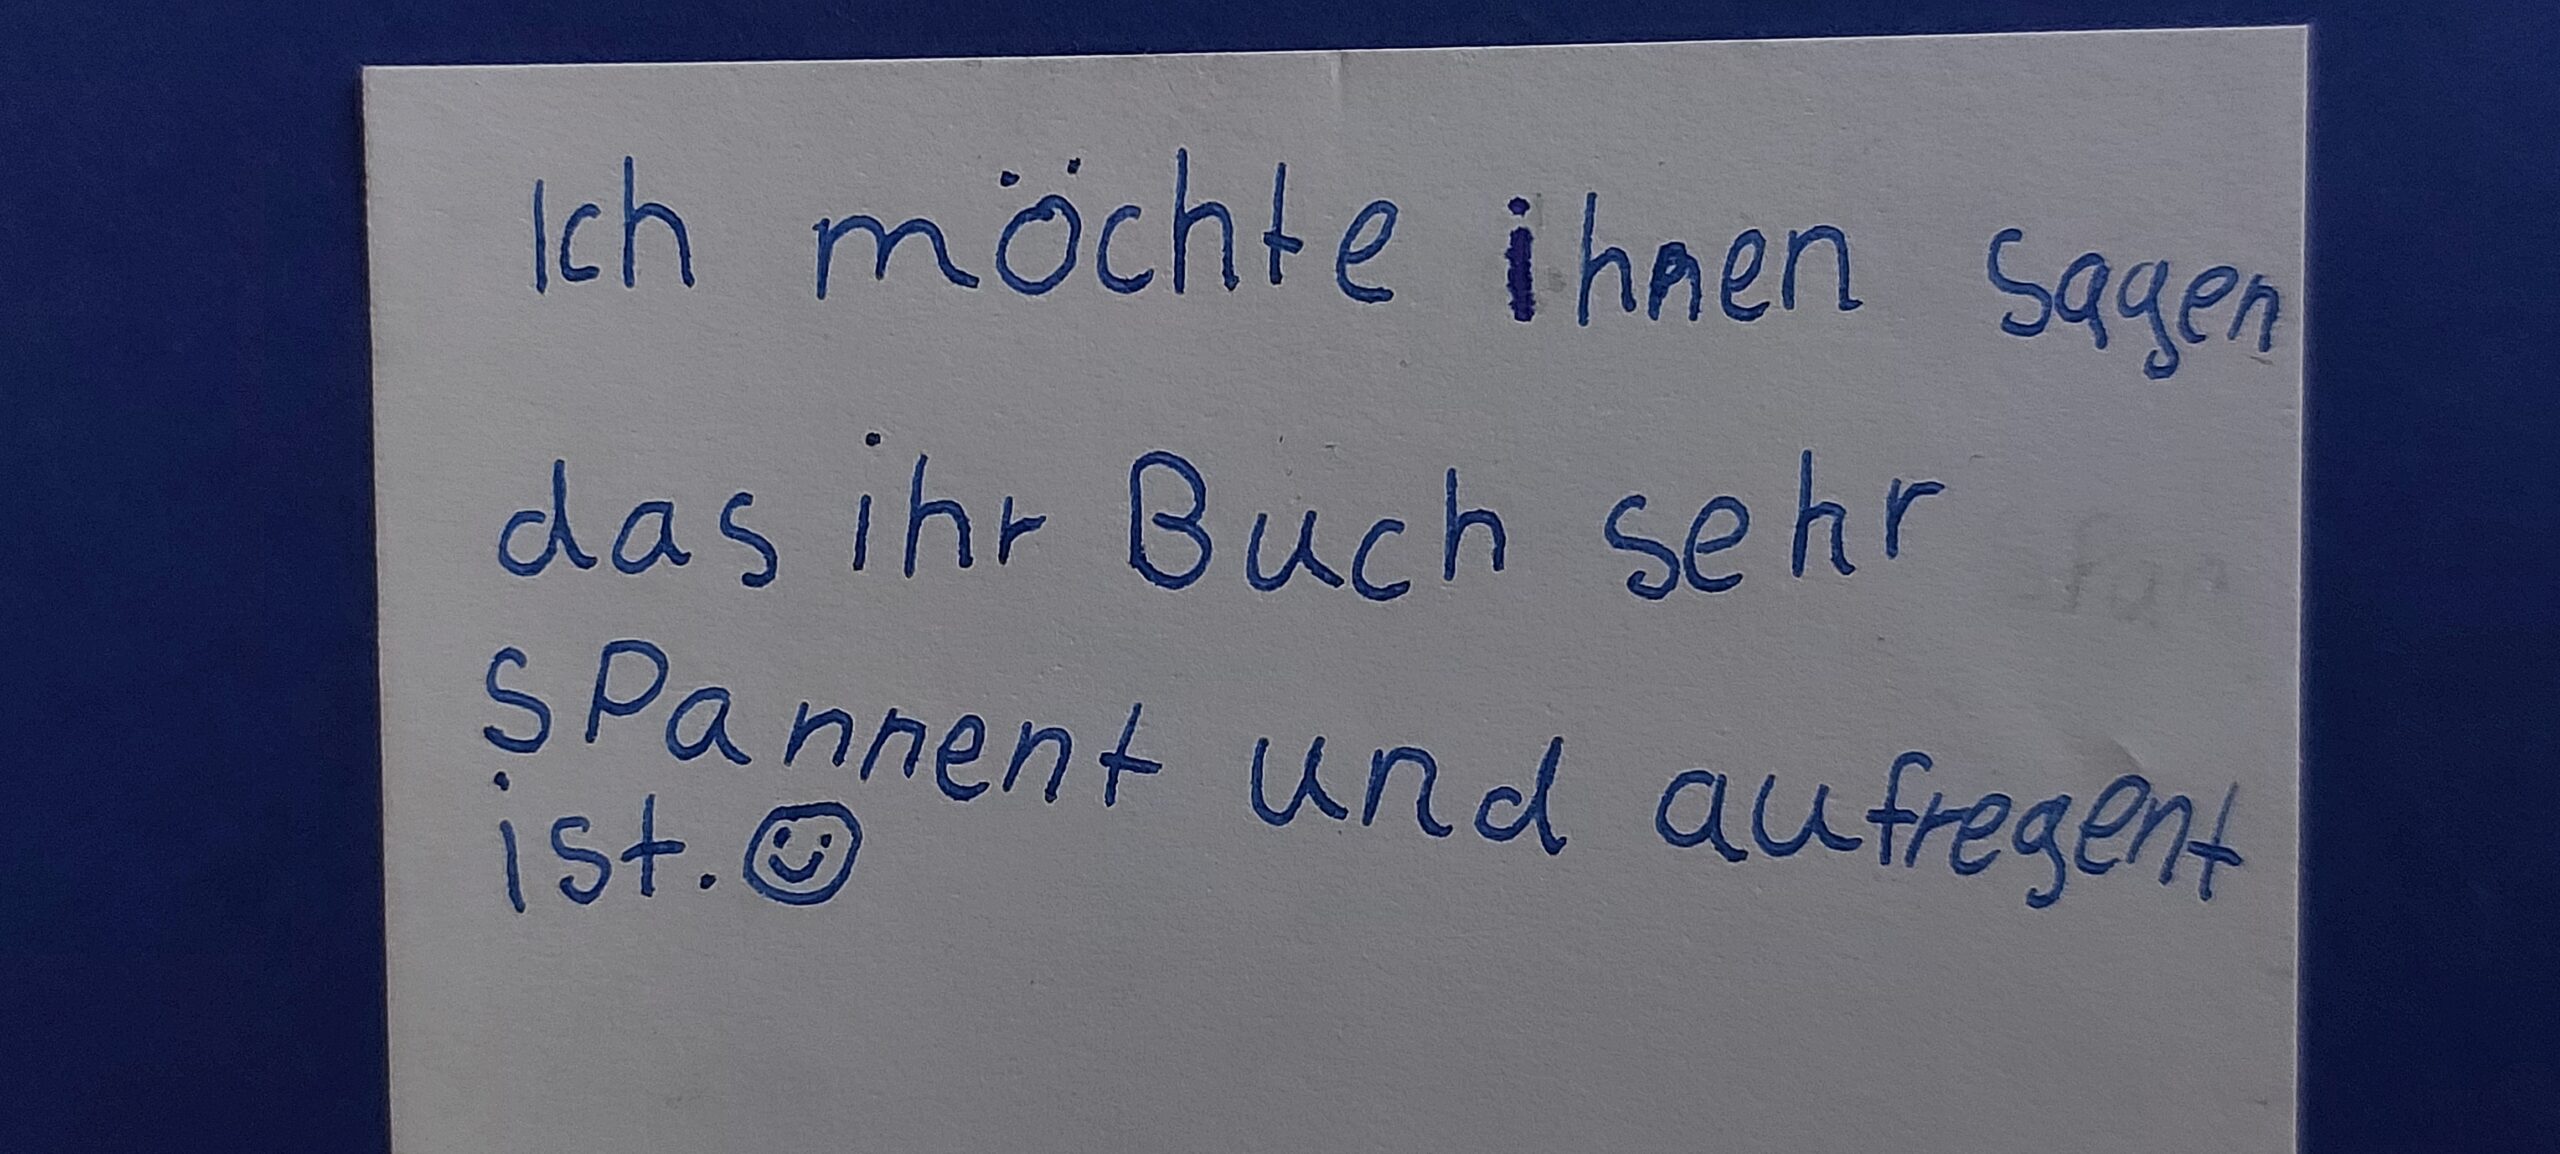 Ich möchte ihnen sagen
das ihr Buch sehr
sPannent und aufregent
ist. ☺